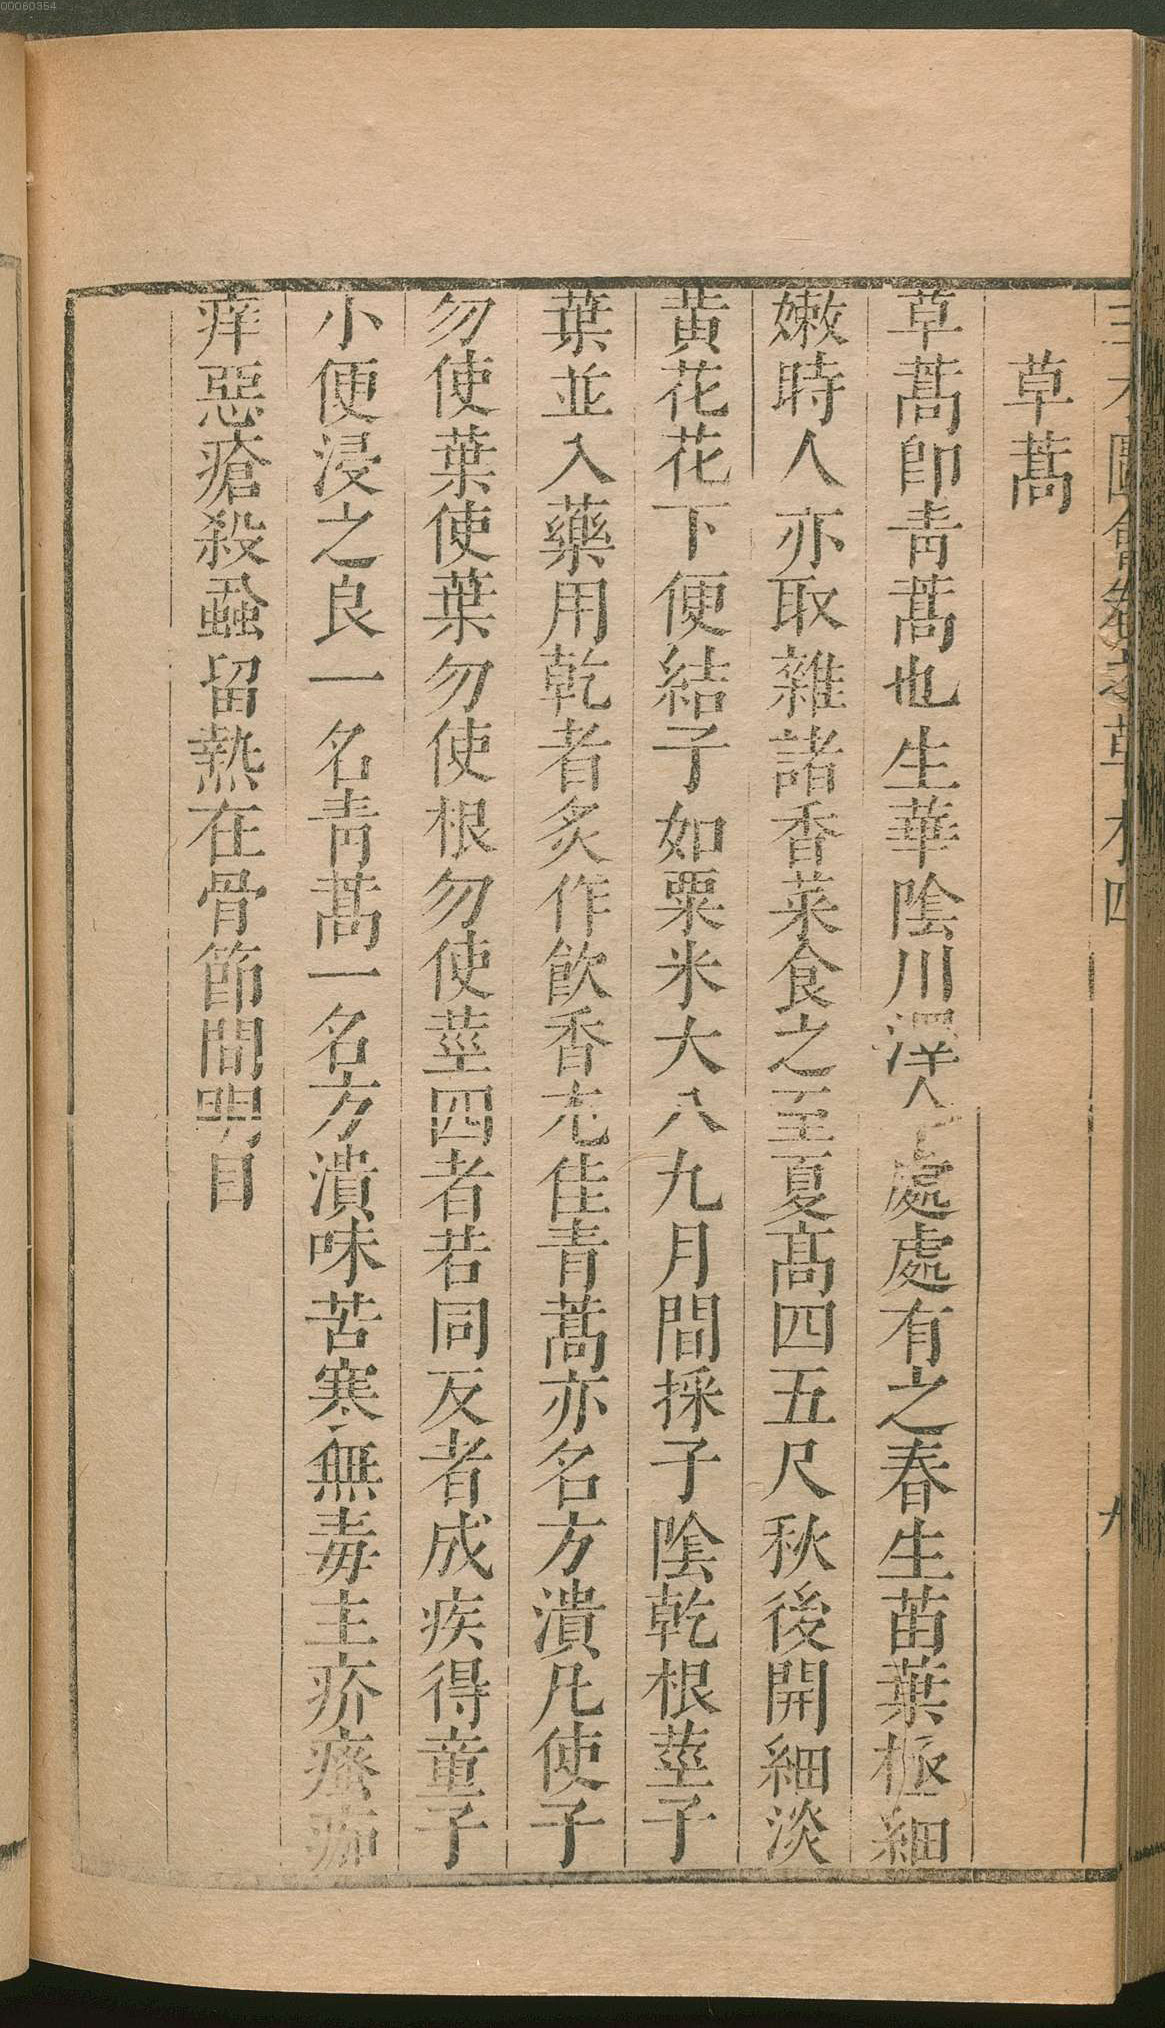 00060354
圖會卷之草木四
草蒿
草蒿卽靑蒿也生華陰川澤今處處有之春生苗葉極細
嫩時人亦取雜諸香菜食之至夏高四五尺秋後開細淡
黃花花下便結子如粟米大八九月間採子陰乾根莖子
葉並入藥用乾者炙作飮香尤佳青蒿亦名方潰凡使子
勿使葉使葉勿使根勿使莖四者若同反者成疾得童子
小便浸之良一名靑蒿一名方潰味苦寒無毒主疥瘙痂
痒惡瘡殺蝨留熱在骨節間明目